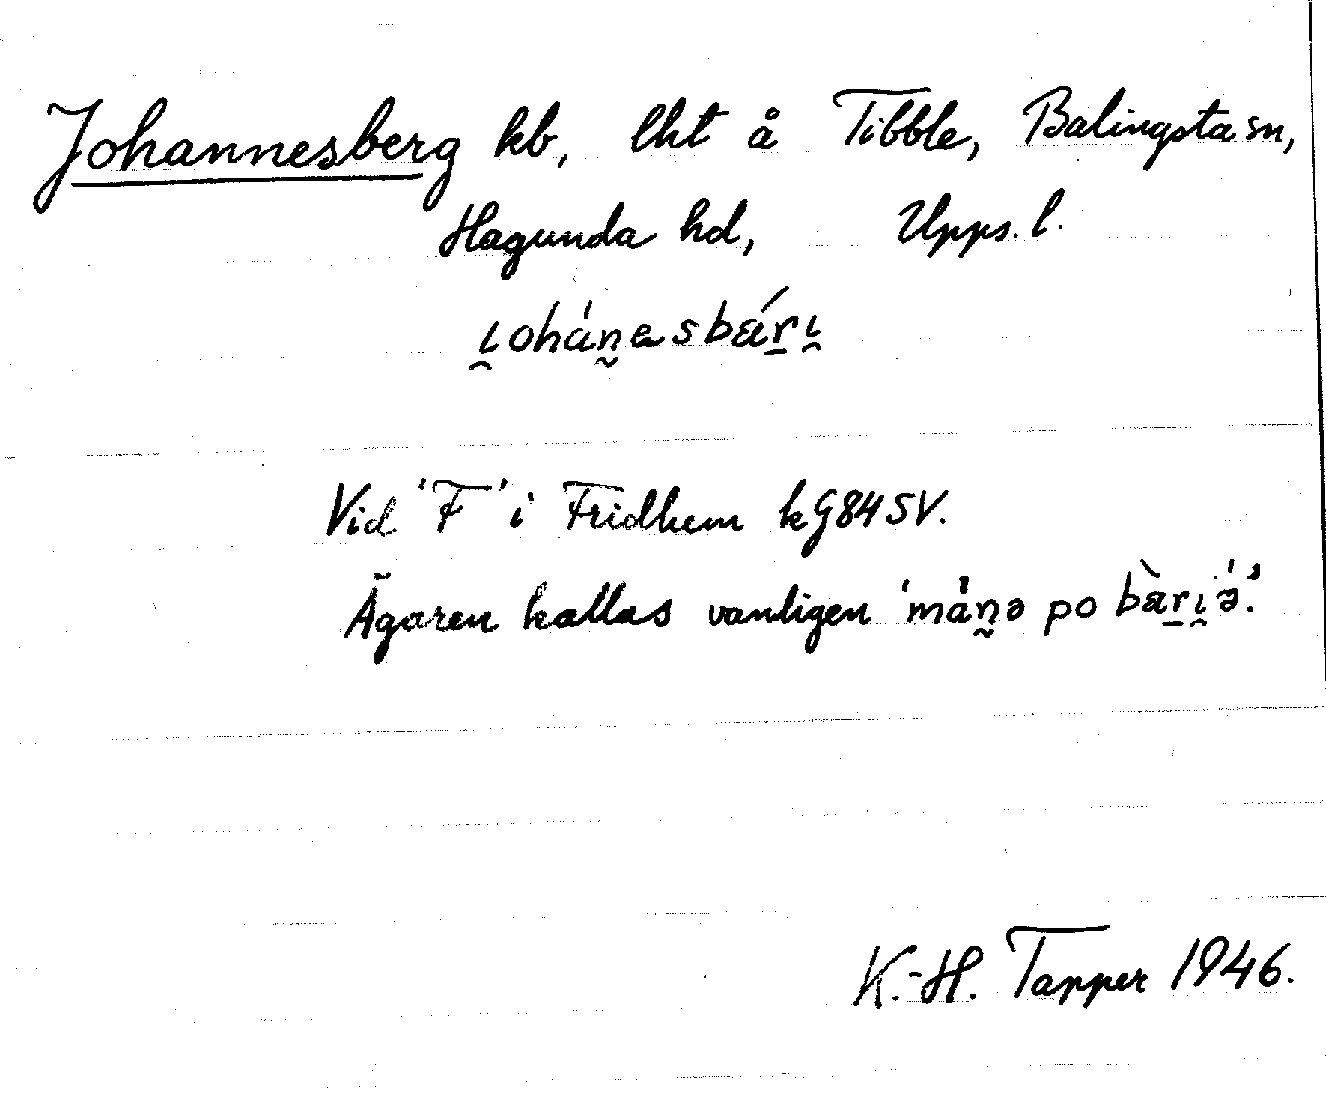 Johannesberg kb, lht å Tibble, Balingsta sn,
Hagunda hd, Upps. l.
ɩ̯ohán̰esbǽr̠ɩ̯
Vid 'F' i Fridhem kG845V.
Ägaren kallas vanligen 'mán̰ə po bæ̀r̠ɩ̯ə́'.
K.-H. Tapper 1946.